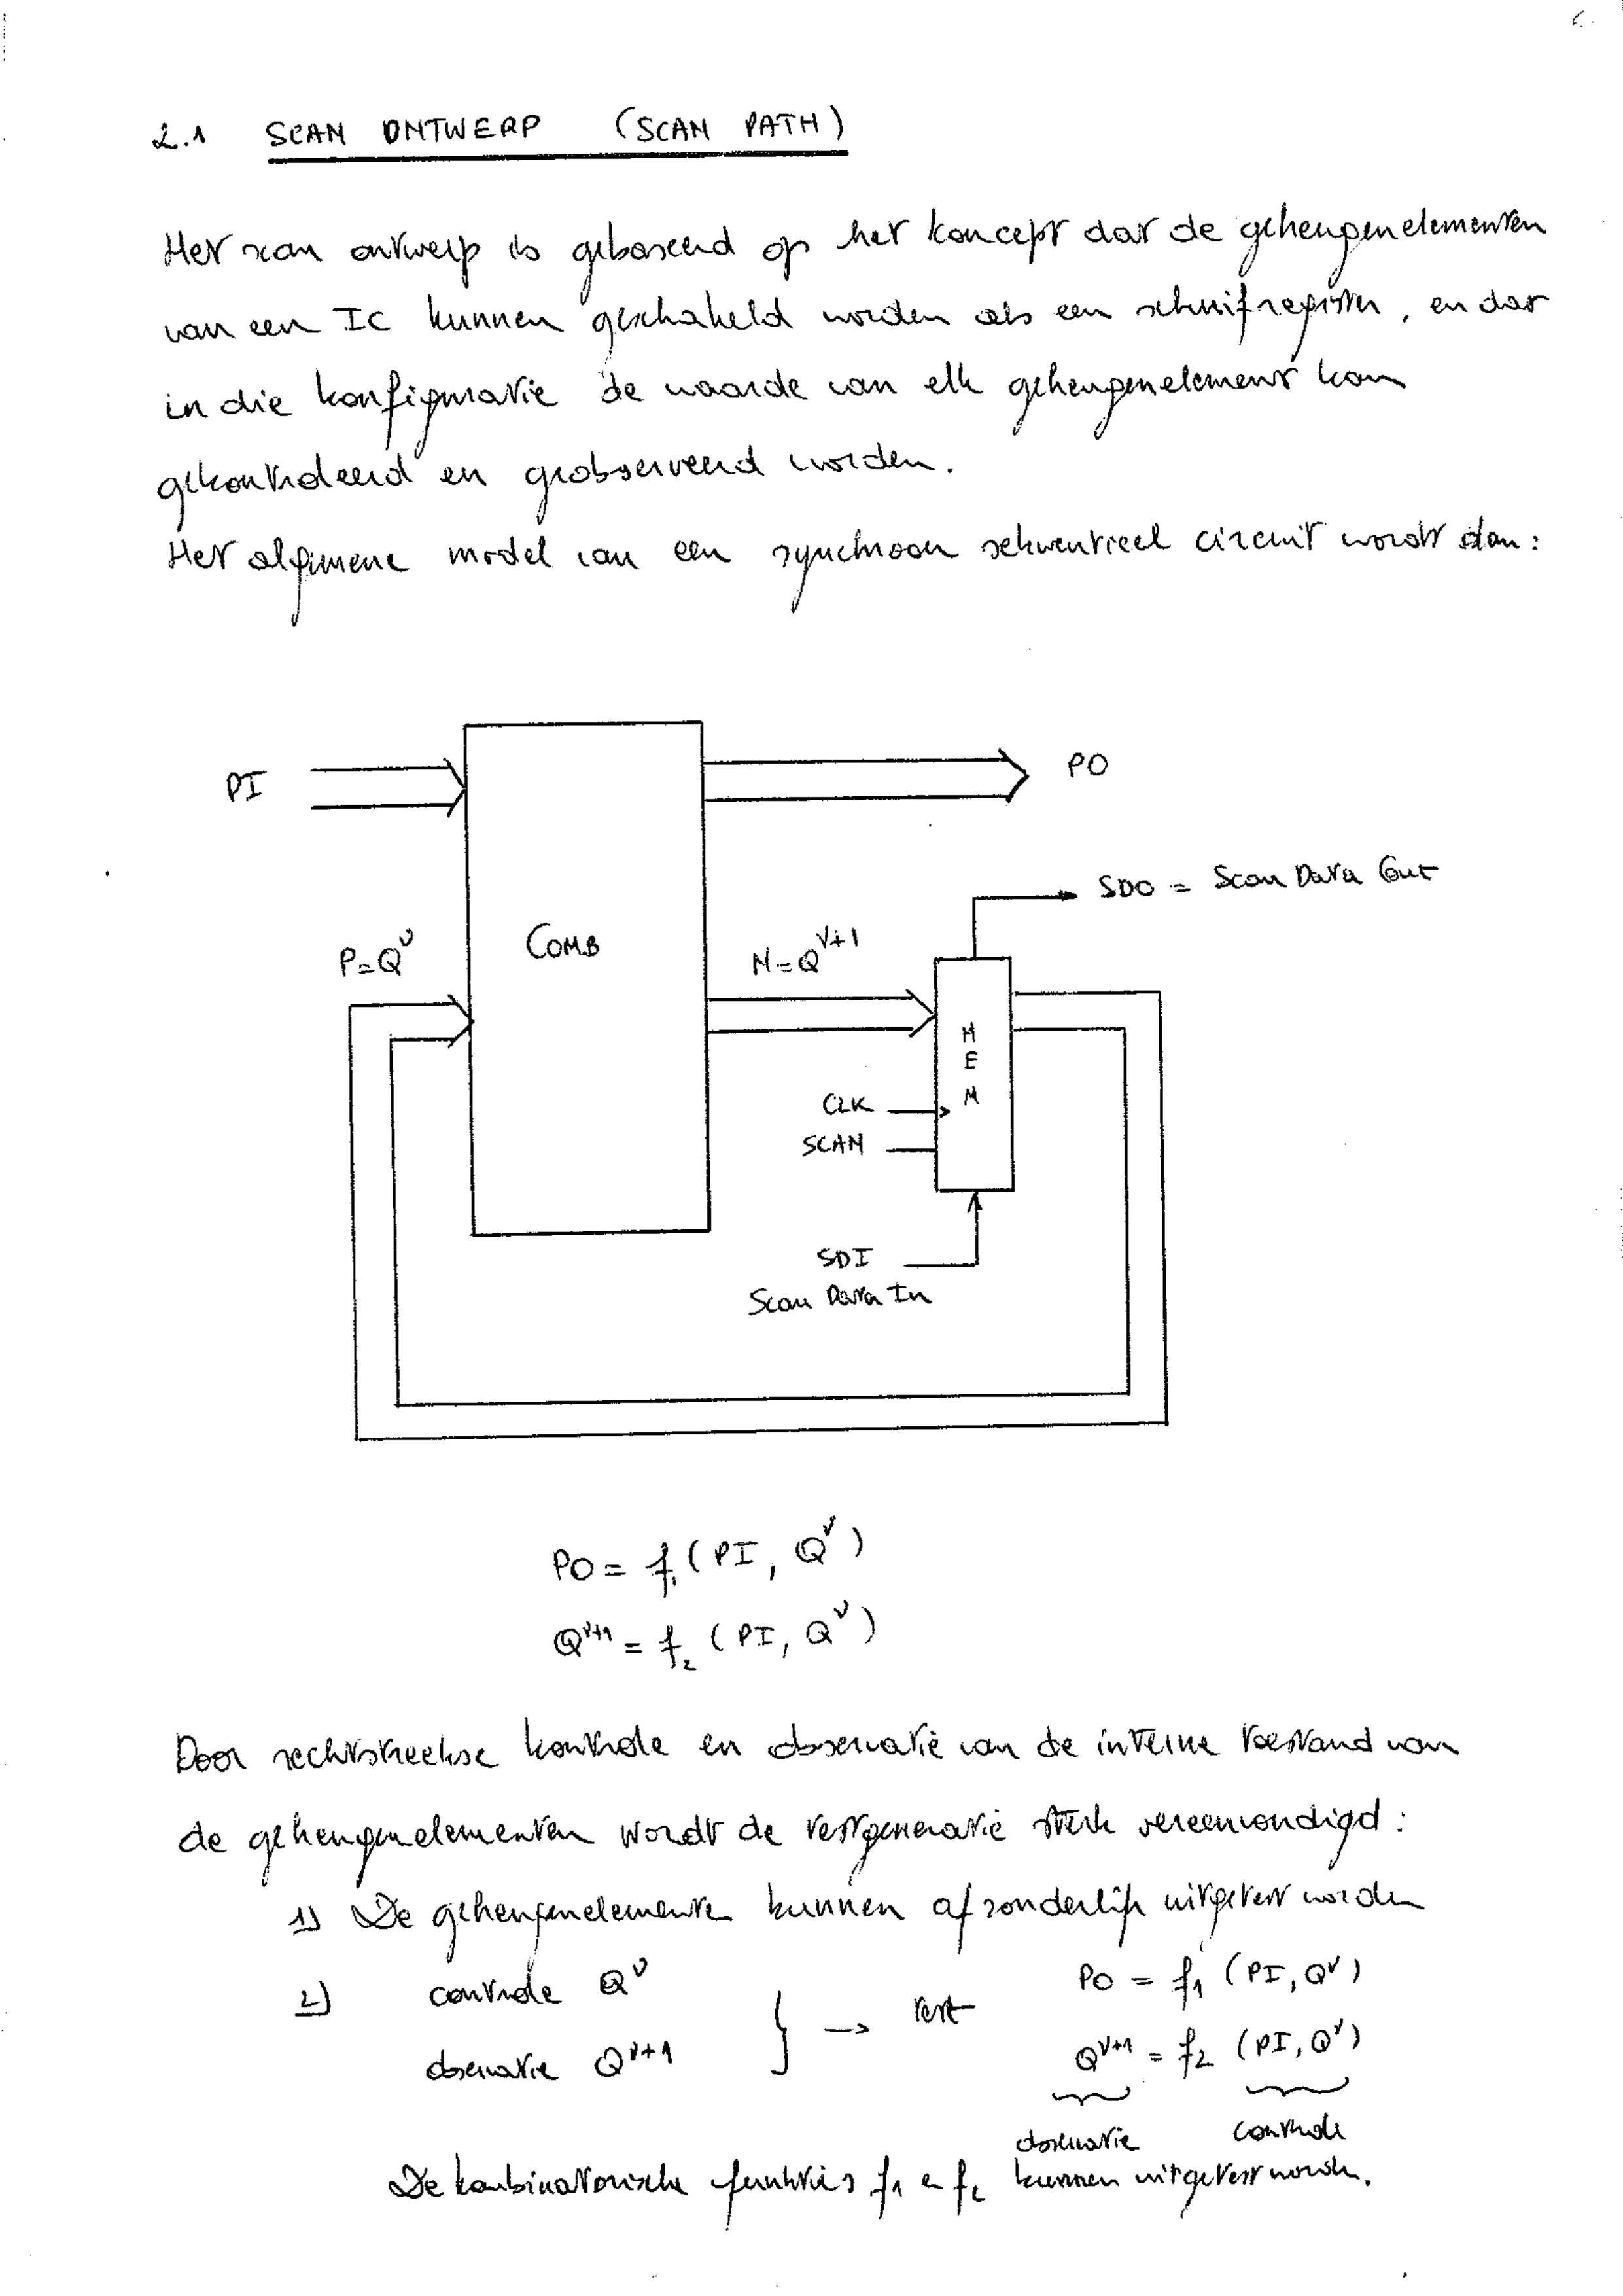 2.1 SCAN ONTWERP (SCAN PATH)
Het scan ontwerp is gebaseerd op het koncept dat de geheugenelementen
van een IC kunnen geschakeld worden als een schuifregister, en dat
in die konfiguratie de waarde van elk geheugenelement kan
gekontroleerd en geobserveerd worden.
Het algemene model van een synchroon sekwentieel circuit wordt dan:
PI
PO
SDO = Scan Data Out
P=Q^ν
COMB
N=Q^ν+1
MEM
CLK
SCAN
SDI
Scan Data In
PO = f₁ (PI, Q^ν)
Q^ν+1 = f₂ (PI, Q^ν)
Door rechtstreekse kontrole en observatie van de interne toestand van
de geheugenelementen wordt de testgeneratie sterk vereenvoudigd:
1) De geheugenelementen kunnen afzonderlijk uitgetest worden
2) controle Q^ν
observatie Q^ν+1
} → test
PO = f₁ (PI, Q^ν)
Q^ν+1 = f₂ (PI, Q^ν)
observatie controle
De kombinatorische funkties f₁ en f₂ kunnen uitgetest worden.